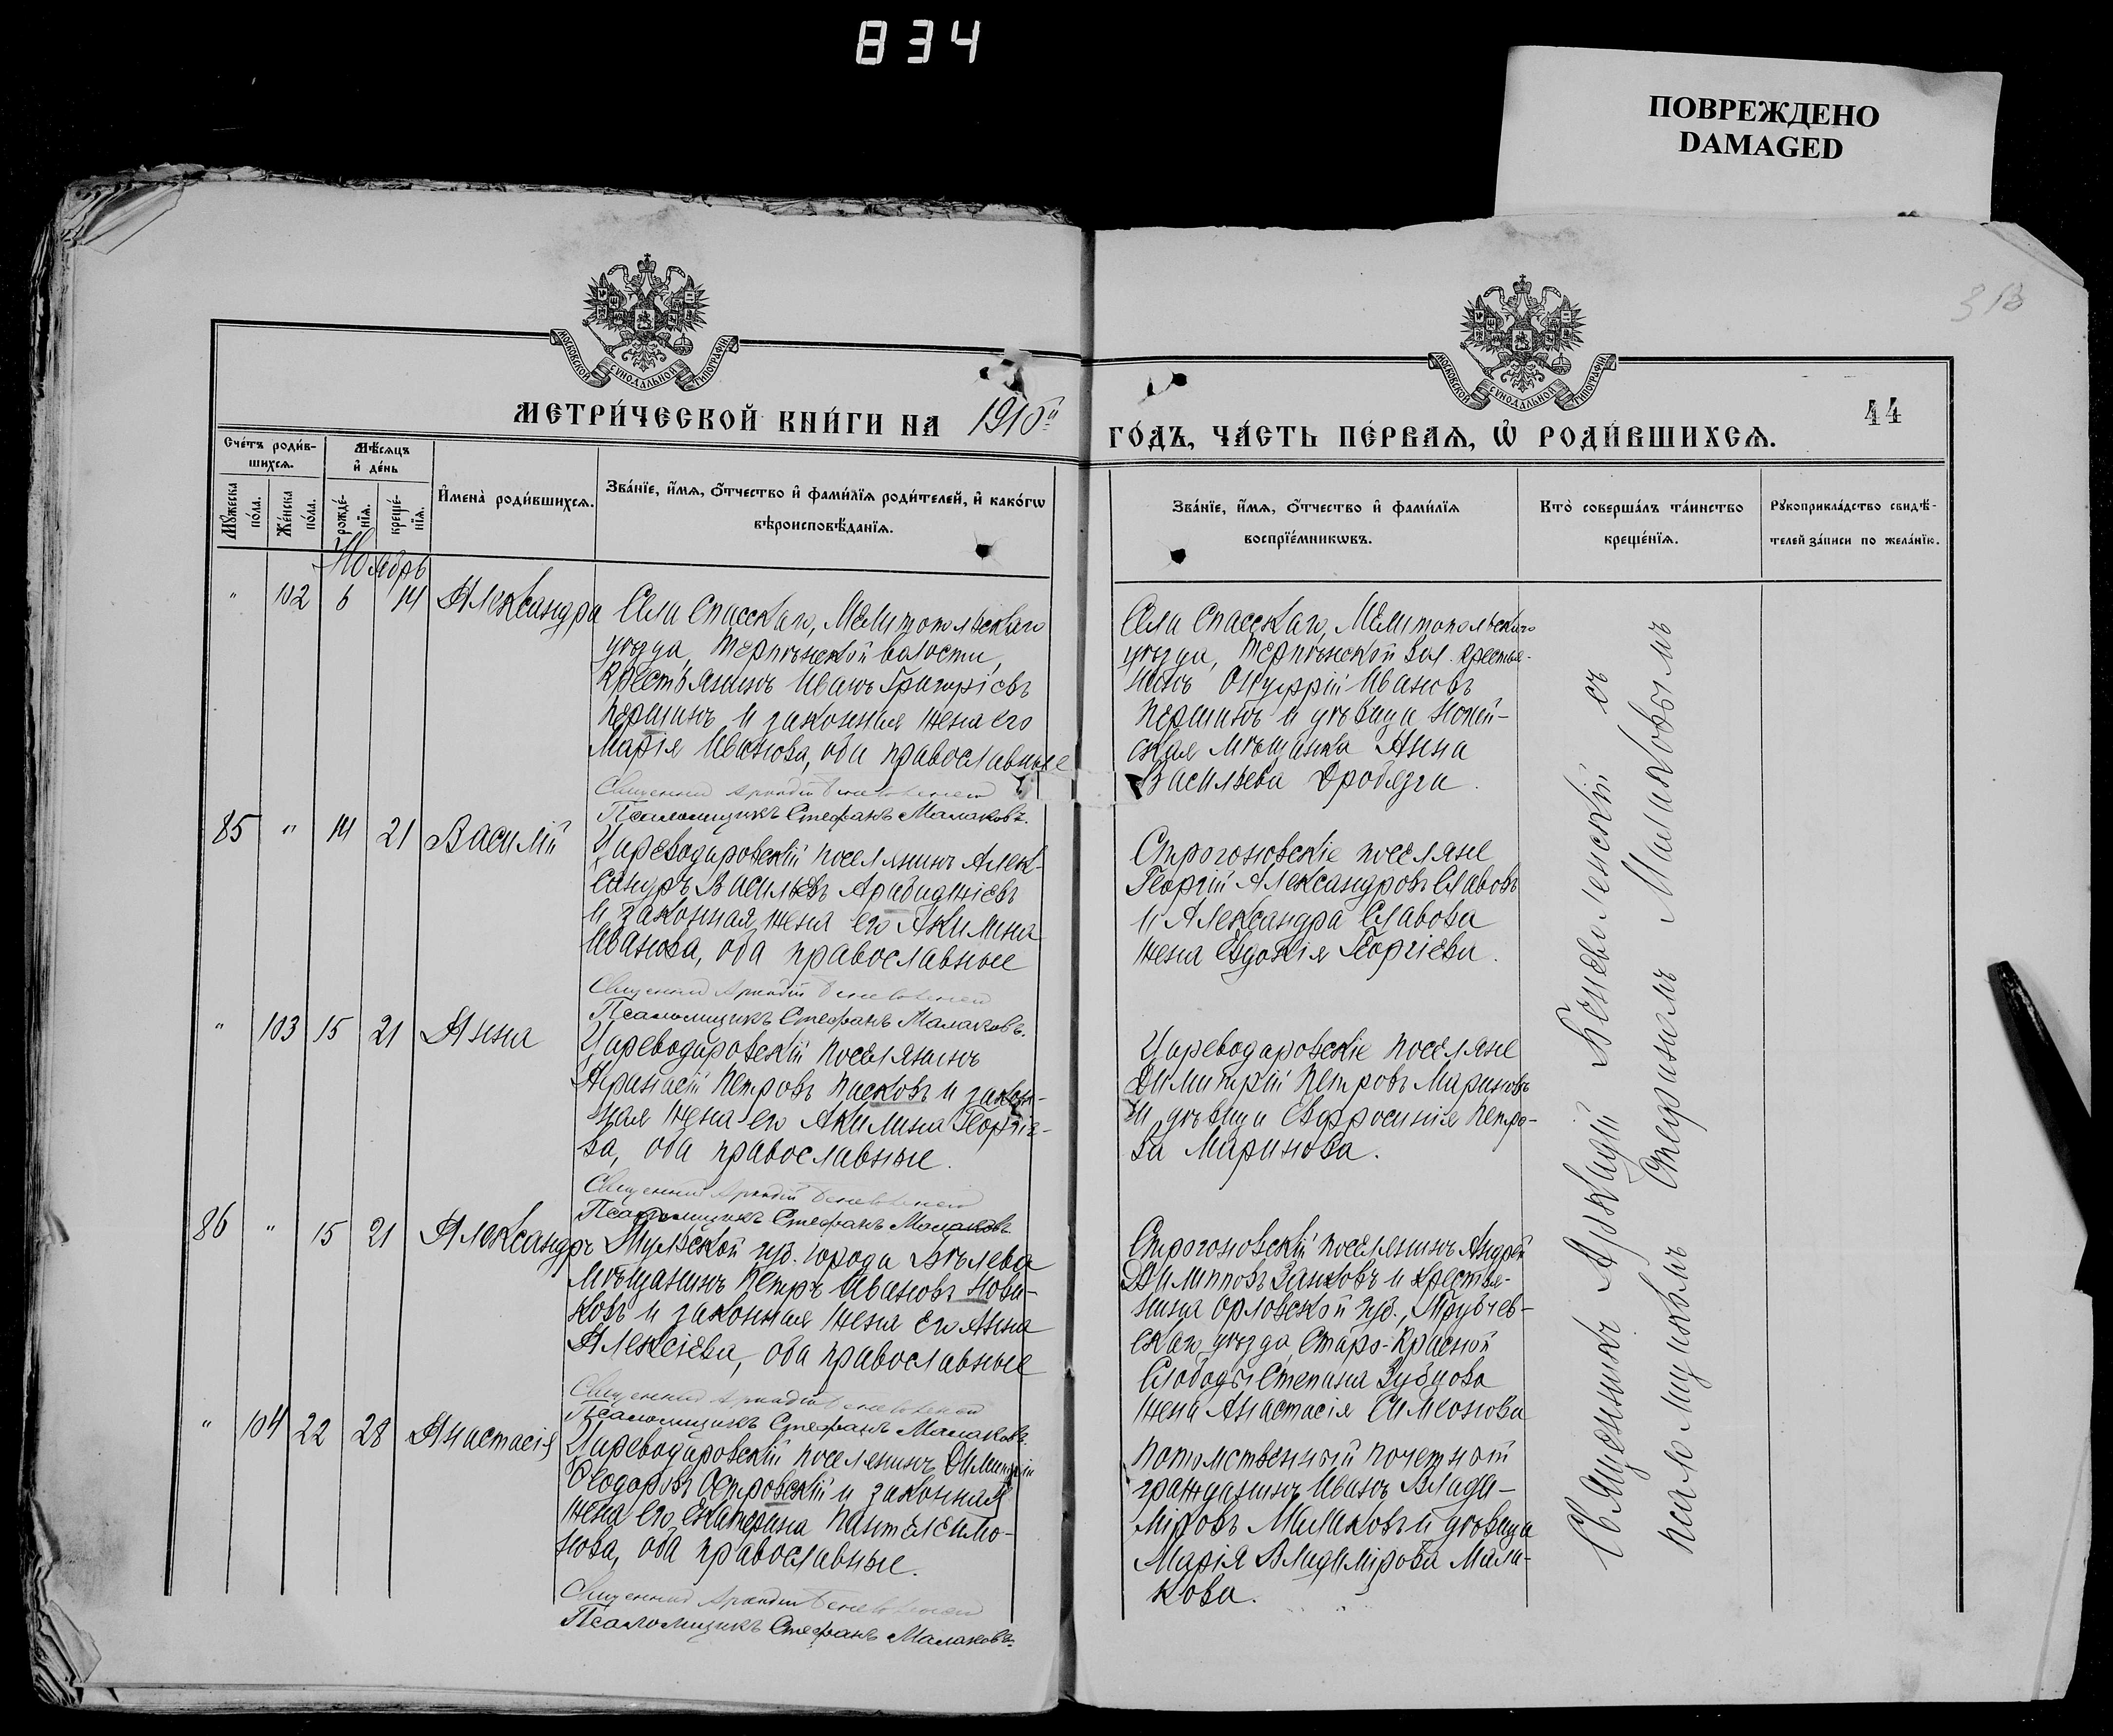 834
ПОВРЕЖДЕНО
DAMAGED
313
МОСКОВСКОЙ СѴНОДАЛЬНОЙ ТИПОГРАФІИ
МОСКОВСКОЙ СѴНОДАЛЬНОЙ ТИПОГРАФІИ
МЕТРИ́ЧЕСКОЙ КНИ́ГИ НА 1910й
ГО́ДЪ, ЧА́СТЬ ПЕ́РВАѦ, Ѿ РОДИ́ВШИХСѦ.
44
Сче́тъ роди́в-
шихсѧ.
Мѣ́сѧцъ
и҆ де́нь
Мꙋ́жеска
по́ла.
Же́нска
по́ла.
рожде́-
нїѧ.
креще́-
нїѧ.
И҆мена̀ роди́вшихсѧ.
Зва́нїе, и҆́мѧ, ѻ҆́тчество и҆ фами́лїѧ роди́телей, и҆ како́гѡ
вѣроисповѣ́данїѧ.
Зва́нїе, и҆́мѧ, ѻ҆́тчество и҆ фами́лїѧ
воспрїе́мникѡвъ.
Кто̀ соверша́лъ та́инство
креще́нїѧ.
Рꙋкоприкла́дство свидѣ́-
телей за́писи по жела́нїю.
Ноябрь
" 102 6 14 Александра
Села Спасскаго, Мелитопольскаго
уѣзда, Терпѣнской волости,
крестьянинъ Иванъ Григоріевъ
Першинъ и законная жена его
Марія Иванова, оба православные
Священникъ Аркадій Беневоленскій
Псаломщикъ Стефанъ Малаковъ.
Села Спасскаго, Мелитопольскаго
уѣзда, Терпѣнской вол. крестья-
нинъ Онуфрій Ивановъ
Першинъ и дѣвица Ногай-
ская мѣщанка Анна
Васильева Дробязга.
85 " 14 21 Василій
Цареводаровскій поселянинъ Алек-
сандръ Васильевъ Арабаджіевъ
и законная жена его Акилина
Иванова, оба православные
Священникъ Аркадій Беневоленскій
Псаломщикъ Стефанъ Малаковъ.
Строгоновскіе поселяне
Георгій Александровъ Славовъ
и Александра Славова
жена Евдокія Георгіева.
" 103 15 21 Анна
Цареводаровскій поселянинъ
Афанасій Петровъ Пасковъ и закон-
ная жена его Акилина Георгіе-
ва, оба православные.
Священникъ Аркадій Беневоленскій
Псаломщикъ Стефанъ Малаковъ.
Цареводаровскіе поселяне
Димитрій Петровъ Мариновъ
и дѣвица Евфросинія Петро-
ва Маринова.
86 " 15 21 Александръ
Тульской губ. города Бѣлева
мѣщанинъ Петръ Ивановъ Нови-
ковъ и законная жена его Анна
Алексіева, оба православные
Священникъ Аркадій Беневоленскій
Псаломщикъ Стефанъ Малаковъ.
Строгоновскій поселянинъ Андрей
Филипповъ Занковъ и крестья-
нина Орловской губ., Трубчев-
скаго уѣзда, Старо-Красной
Слободы Степана Зубцова
жена Анастасія Симеонова
" 104 22 28 Анастасія
Цареводаровскій поселянинъ Димитрій
Ѳеодоровъ Островскій и законная
жена его Екатерина Пантелеимо-
нова, оба православные.
Священникъ Аркадій Беневоленскій
Псаломщикъ Стефанъ Малаковъ.
Потомственный почетный
гражданинъ Иванъ Влади-
міровъ Малаковъ и дѣвица
Марія Владимірова Мала-
кова.
Священникъ Аркадій Беневоленскій съ
псаломщикомъ Стефаномъ Малаковымъ